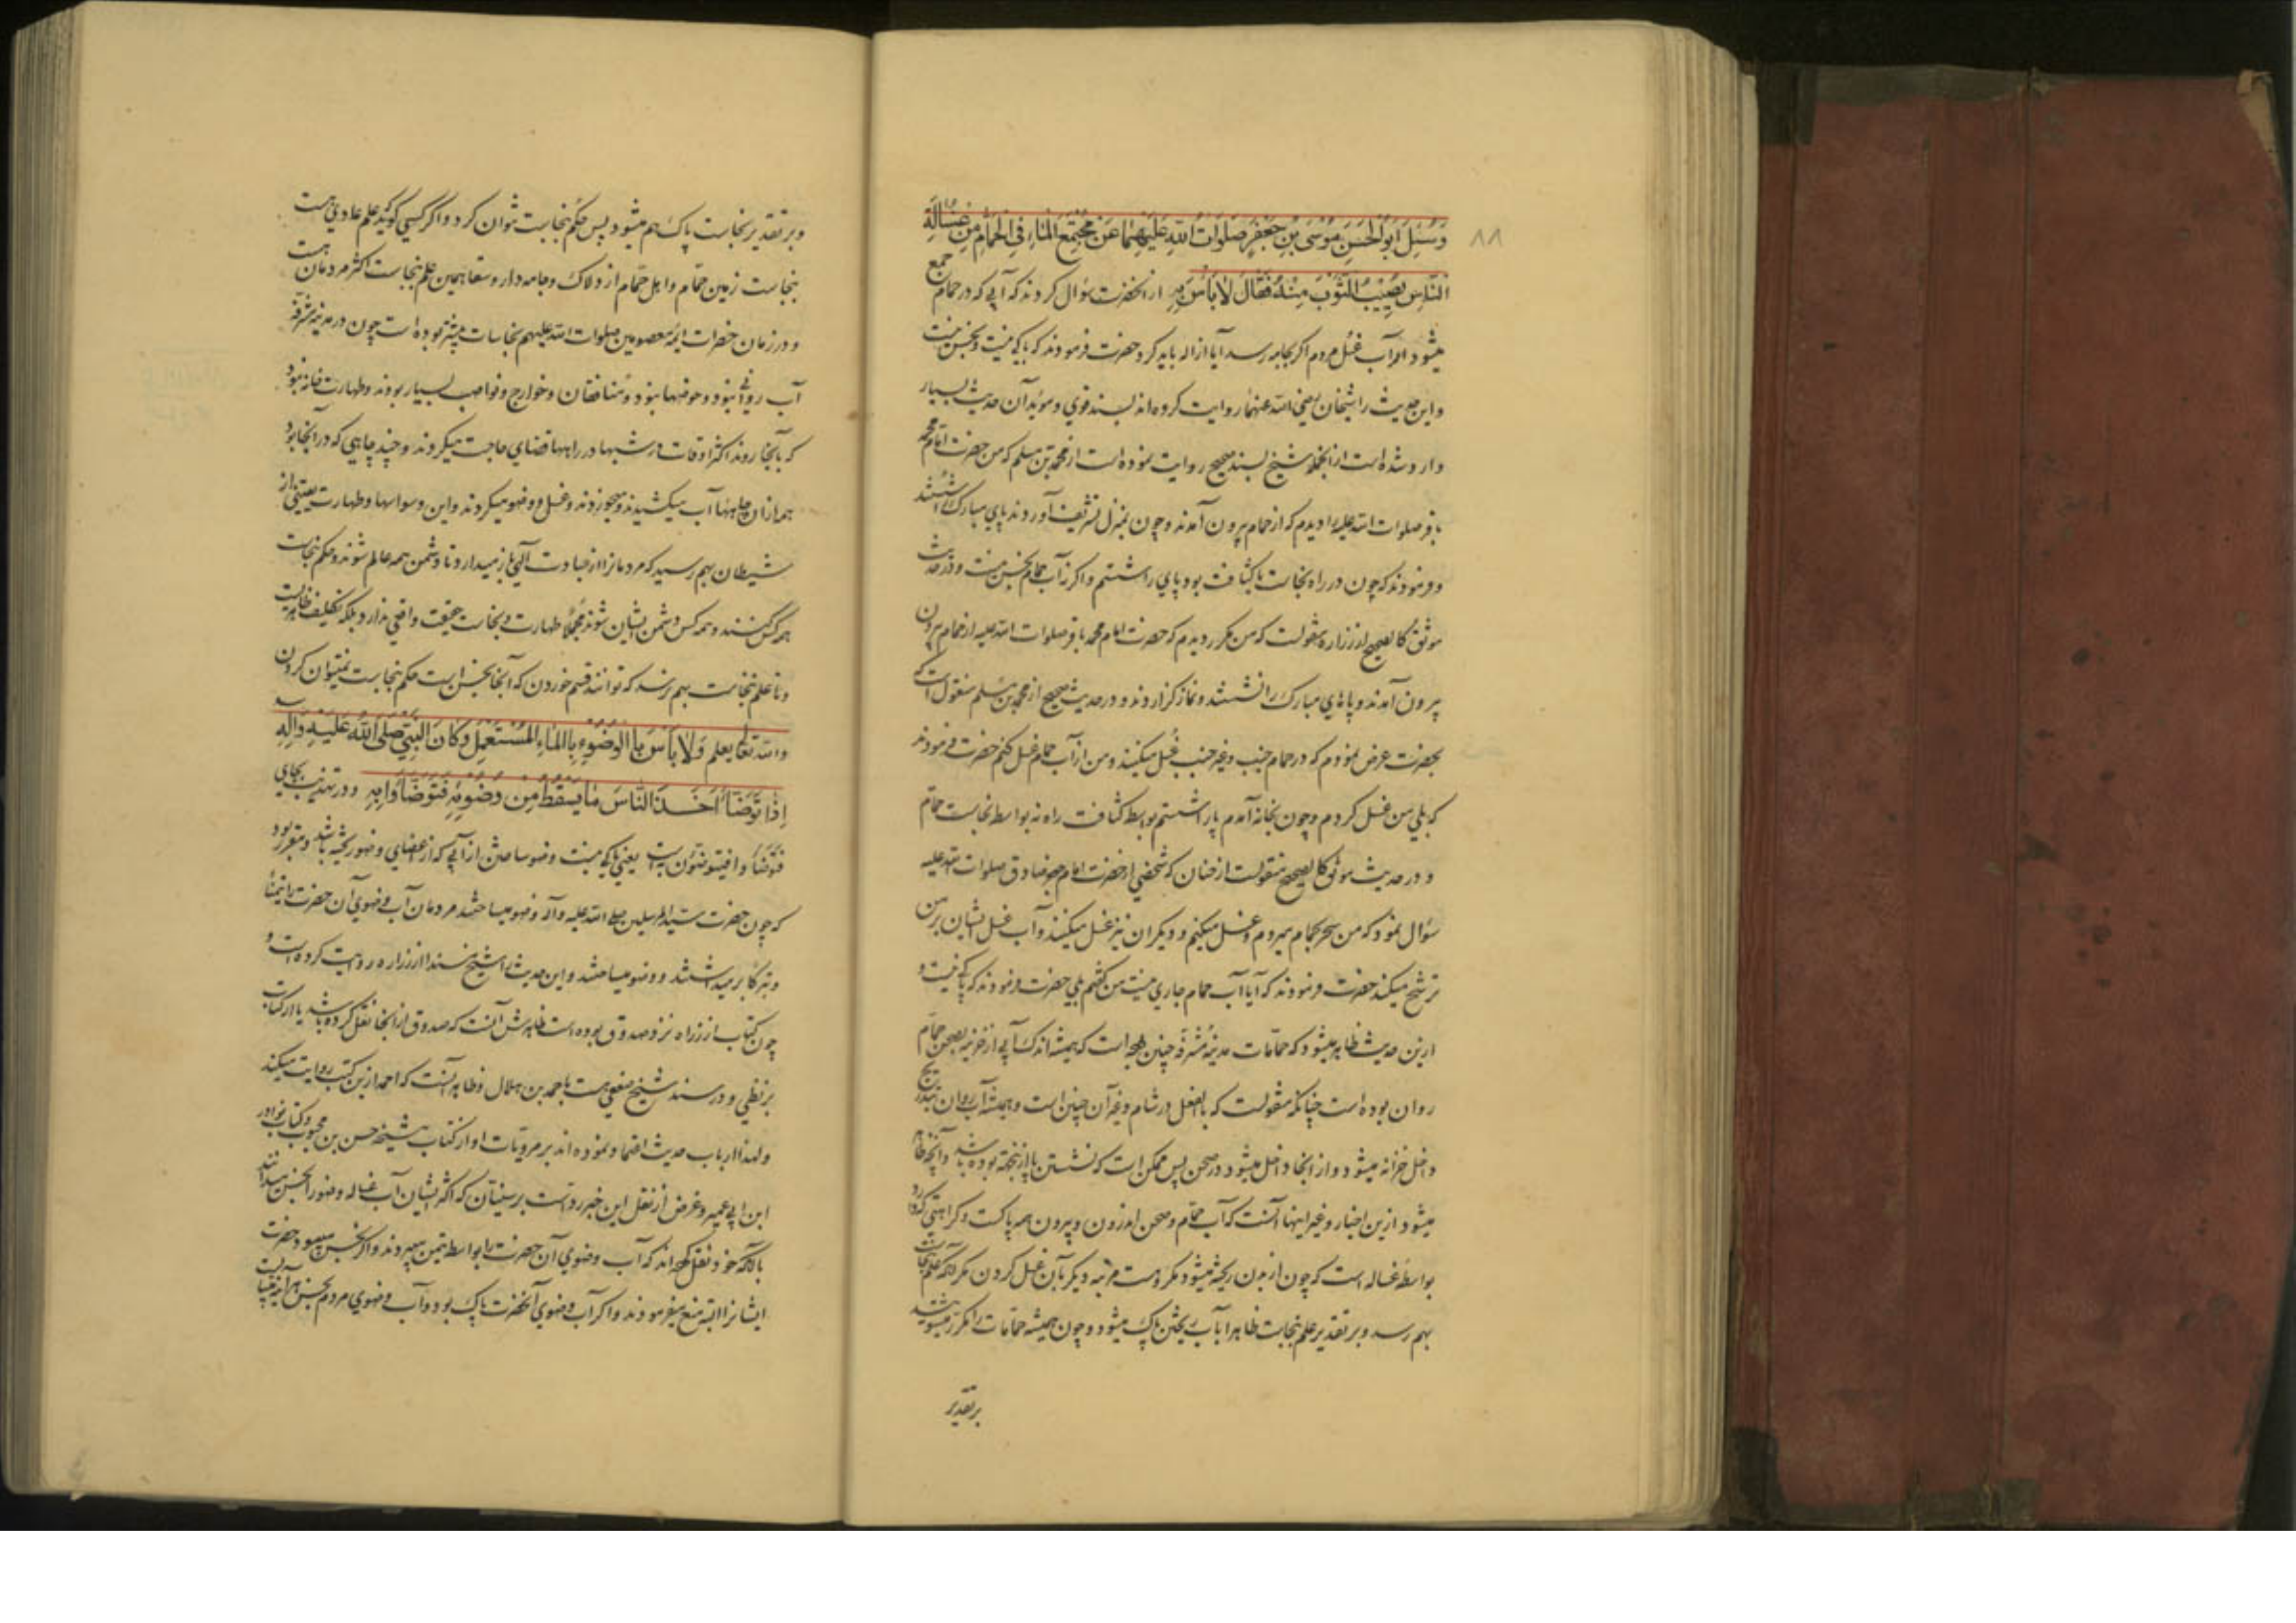 ٨٨
وَسُئِلَ اَبُوالْحَسَنِ مُوْسَی بْنِ جَعْفَرٍ صَلَوَاتُ اللّٰهِ عَلَیْهِمَا عَنْ مُجْتَمَعِ الْمَاءِ فِی الْحَمَّامِ مِنْ غُسَالَةِ
النَّاسِ یُصِیْبُ الثَّوْبَ مِنْهُ فَقَالَ لَا بَأْسَ بِهِ از انحضرت سؤال کردند که آبی که در حمام جمع
میشود از آب غسل مردم اگر بجامه رسد آیا ازاله باید کرد حضرت فرمودند که باکی نیست و نجس نیست
و این حدیث را شیخان رضی الله عنهما روایت کرده اند بسند قوی و موید آن حدیث بسیار
وارد شده است از انجمله شیخ بسند صحیح روایت نموده است از محمد بن مسلم که من حضرت امام محمد
باقر صلوات الله علیه را دیدم که از حمام بیرون آمدند و چون بمنزل تشریف آوردند پای مبارک را شستند
و فرمودند که چون در راه نجاست یا کثافت بود پای را شستم و اگر نه آب حمام نجس نیست و در حدیث
موثق کالصحیح از زراره منقولست که من مکرر دیدم که حضرت امام محمد باقر صلوات الله علیه از حمام بیرون
بیرون آمدند و پاهای مبارک را نشستند و نماز گزاردند و در حدیث صحیح از محمد بن مسلم منقول است که
بحضرت عرض نمودم که در حمام جنب و غیر جنب غسل میکنند و من از آب حمام غسل کنم حضرت فرمودند
که بلی من غسل کردم و چون بخانه آمدم پا را شستم بواسطه کثافت راه نه بواسطه نجاست حمام
و در حدیث موثق کالصحیح منقولست از حنان که شخصی از حضرت امام جعفر صادق صلوات الله علیه
سؤال نمود که من سحر بحمام میروم و غسل میکنم و دیگران نیز غسل میکنند و آب غسل ایشان بر من
ترشح میکند حضرت فرمودند که آیا آب حمام جاری نیست من گفتم بلی حضرت فرمودند که باکی نیست و
ازین حدیث ظاهر میشود که حمامات مدینه مشرفه چنین بوده است که همیشه اندک آبی از خزینه بصحن حمام
روان بوده است چنانکه منقولست که بالفعل در شام و غیر آن چنین است و همیشه آب روان بتدریج
داخل خزانه میشود و از انجا داخل میشود در صحن پس ممکن است که نشستن پا ازینجهة بوده باشد و آنچه ظاهر
میشود ازین اخبار و غیر اینها آنست که آب حمام و صحن اندرون و بیرون همه پاکست و کراهتی که دارد
بواسطه غساله است که چون از بدن ریخته میشود مکروهست مرتبه دیگر بآن غسل کردن مگر آنکه علم نجاست
بهم رسد و بر تقدیر علم نجاست ظاهرا بآب ریختن پاک میشود و چون همیشه حمامات را مکرر میشویند
بر تقدیر
و بر تقدیر نجاست پاک هم میشود پس حکم نجاست نتوان کرد و اگر کسی گوید که علم عادی هست
بنجاست زمین حمام و اهل حمام از دلاک و جامه دار و سقا همین علم بنجاست اکثر مردمان هست
و در زمان حضرات ائمه معصومین صلوات الله علیهم نجاسات بیشتر بوده است چون در مدینه مشرفه
آب روانی نبود و حوضها نبود و منافقان و خوارج و نواصب بسیار بودند و طهارت خانه نبود
که بآنجا روند اکثر اوقات در شبها در راهها قضای حاجت میکردند و چند چاهی که در آنجا بود
هم از آن چاهها آب میکشیدند و میخوردند و غسل و وضو میکردند و این وسواسها و طهارت یعنی از
شیطان بهم رسید که مردمانرا از عبادت الهی باز میدارد تا دشمن همه عالم شوند و حکم نجاست
همه کس کنند و همه کس دشمن ایشان شوند مجملا طهارت و نجاست حقیقت واقعی ندارد بلکه تکلیف ظاهریست
و تا علم نجاست بهم نرسد که توانند قسم خوردن که آنجا نجس است حکم نجاست نمیتوان کردن
والله تعالی یعلم وَلَا بَأْسَ بِالْوُضُوءِ بِالْمَاءِ الْمُسْتَعْمَلِ وَکَانَ النَّبِیُّ صَلَّی اللّٰهُ عَلَیْهِ وَاٰلِهِ
اِذَا تَوَضَّأَ اَخَذَ النَّاسُ مَا یَسْقُطُ مِنْ وَضُوْئِهِ فَتَوَضَّأُوا بِهِ و در تهذیب بجای
فتوضأوا فیتوضئون است یعنی باکی نیست وضو ساختن از آبی که از اعضای وضو ریخته باشد و مقرر بود
که چون حضرت سید المرسلین صلی الله علیه وآله وضو میساختند مردمان آب وضوی آن حضرت را تیمنا
و تبرکا بر میداشتند و وضو میساختند و این حدیث را شیخ مسندا از زراره روایت کرده است و
چون کتاب از زراه نزد صدوق بوده است ظاهرش آنست که صدوق از انجا نقل کرده باشد یا از کتاب
بزنطی و در سند شیخ ضعفی هست باحمد بن هلال و ظاهر آنست که احمد ازین کتب روایت میکند
و لهذا ارباب حدیث اعتماد نموده اند بر مرویات او از کتاب مشیخه حسن بن محبوب و کتاب نوادر
ابن ابی عمیر و غرض از نقل این خبر رد است بر سنیان که اکثر ایشان آب غساله وضو را نجس میدانند
با آنکه خود نقل کرده اند که آب وضوی آن حضرت را بواسطه تیمن میبردند و اگر نجس میبود حضرت
ایشانرا البته منع میفرمودند و اگر آب وضوی آنحضرت پاک بود و آب وضوی مردم نجس